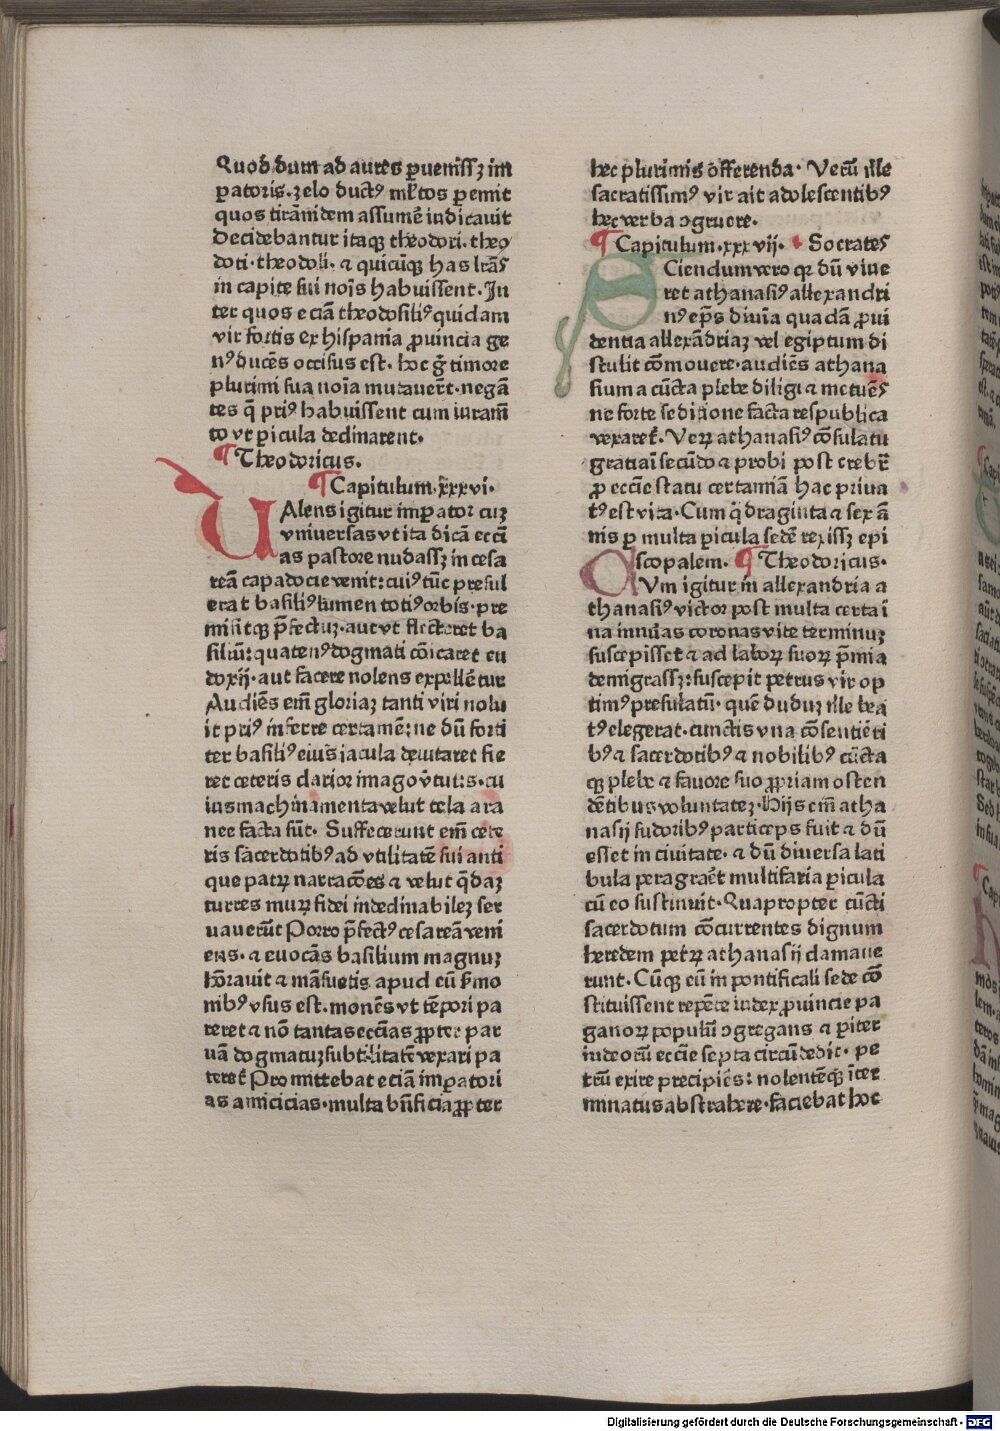 Quod dum ad aures ꝑuenissꝫ im
ꝑatoris. zelo ductꝰ ml̄tos ꝑemit
quos tirānidem assume᷑ iudicauit
Decidebantur itaqꝫ theodori. theo
doti. theodoli. ⁊ quicūqꝫ has lr̄as
in capite sui noīs habuissent. In
ter quos eciā theodosilꝰ quidam
vir fortis ex hispania ꝓuincia ge
nꝰ ducēs occisus est. hoc gͥ timore
plurimi sua noīa mutauer̄t. negā
tes q̄ priꝰ habuissent cum iuram̄
to vt ꝑicula declinarent.
¶ Theodoricus.
¶ Capitulum. xxxvi.
VAlens igitur imꝑator cuꝫ
vniuersas vt ita dicā ecci̅
as pastore nudassꝫ in cesa
reā capadocie venit: cuiꝰ tūc presul
erat basiliꝰ lumen totiꝰ orbis. pre
misitqꝫ p̄fectuꝫ. aut vt flecteret ba
siliū: quatenꝰ dogmati cōicaret eu
doxij. aut facere nolens expellētur
Audiēs em̄ gloriaꝫ tanti viri nolu
it priꝰ inferre certamē: ne dū forti
ter basiliꝰ eius iacula deuitaret fie
ret ceteris clarior imago v̄tutis. cu
ius machinamenta velut tela ara
nee facta fūt. Suffecerunt em̄ cete
ris sacerdotibꝰ ad vtilitatē sui anti
que patrꝝ narracōes ⁊ velut q̄daꝫ
turres murꝝ fidei indeclinabileꝫ ser
uauerūt Porro p̄fectꝰ cesareā veni
ens. ⁊ euocās basilium magnuꝫ
hōrauit ⁊ māsuetis apud eū sermo
nibꝰ vsus est. monēs vt tēpori pa
reret ⁊ nō tantas ecci̅as ꝓpter par
uā dogmatuꝫ subtilitatē vexari pa
teret᷑ Promittebat eciā imꝑatori
as amicicias. multa bn̄ficia ꝓpter
hec plurimis offerenda. Verū ille
sacratissimꝰ vir ait adolescentibꝰ
hec verba ꝯgruere.
¶ Capitulum. xxxvii. Socrates
SCiendum vero qꝫ dū viue
ret athanasiꝰ allexandri
nꝰ ep̄s diuīa quadā ꝓui
dentia allexādriaꝫ vel egiptum di
stulit cōmouere. audiēs athana
sium a cūcta plebe diligi ⁊ metuēs
ne forte sedicione facta respublica
vexaret᷑. Verꝫ athanasiꝰ cōsulatu
gratiaī secūdo ⁊ probi post crebr̄
ꝓ ecci̅e statu certamīa hac priua
tꝰ est vita. Cum q̄draginta ⁊ sex ā
nis ꝑ multa ꝑicula sedē rexissꝫ epi
scopalem. ¶ Theodoricus.
CVm igitur in allexandria a
thanasiꝰ victor post multa certaī
na innūas coronas vite terminuꝫ
suscepisset ⁊ ad laborꝝ suorꝝ p̄mia
demigrassꝫ: suscepit petrus vir op
timꝰ presulatū. quē duduꝫ ille bea
tꝰ elegerat. cunctis vna cōsentiēti
bꝰ ⁊ sacerdotibꝰ ⁊ nobilibꝰ cūcta
qꝫ plebe ⁊ fauore suo ꝓpriam osten
dētibus voluntateꝫ. Hijs em̄ atha
nasij sudoribꝰ particeps fuit ⁊ dū
esset in ciuitate. ⁊ dū diuersa lati
bula peragraēt multifaria ꝑicula
cū eo sustinuit. Quapropter cūcti
sacerdotum cōcurrentes dignum
heredem petrꝝ athanasij clamaue
runt. Cūqꝫ eū in pontificali sede cō
stituissent repēte iudex ꝓuincie pa
ganorꝝ populū ꝯgregans ⁊ ꝑiter
iudeorū ecci̅e septa circūdedit. pe
trū exire precipiēs: nolentēqꝫ īter
minatus abstrahere. faciebat hoc
Digitalisierung gefördert durch die Deutsche Forschungsgemeinschaft - DFG